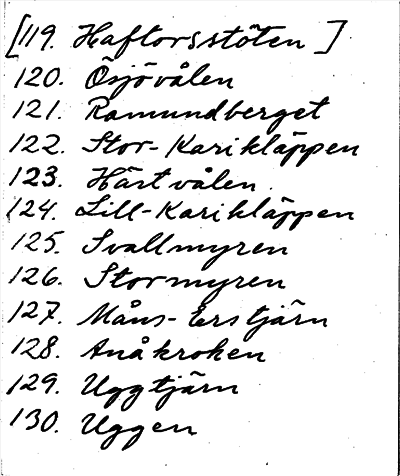 [119. Haftorsstöten ]
120. Ösjövålen
121. Ramundberget
122. Stor-Karikläppen
123. Härtvålen.
124. Lill-Karikläppen
125. Svallmyren
126. Stormyren
127. Måns-Erstjärn
128. Anåkroken
129. Uggtjärn
130. Uggen